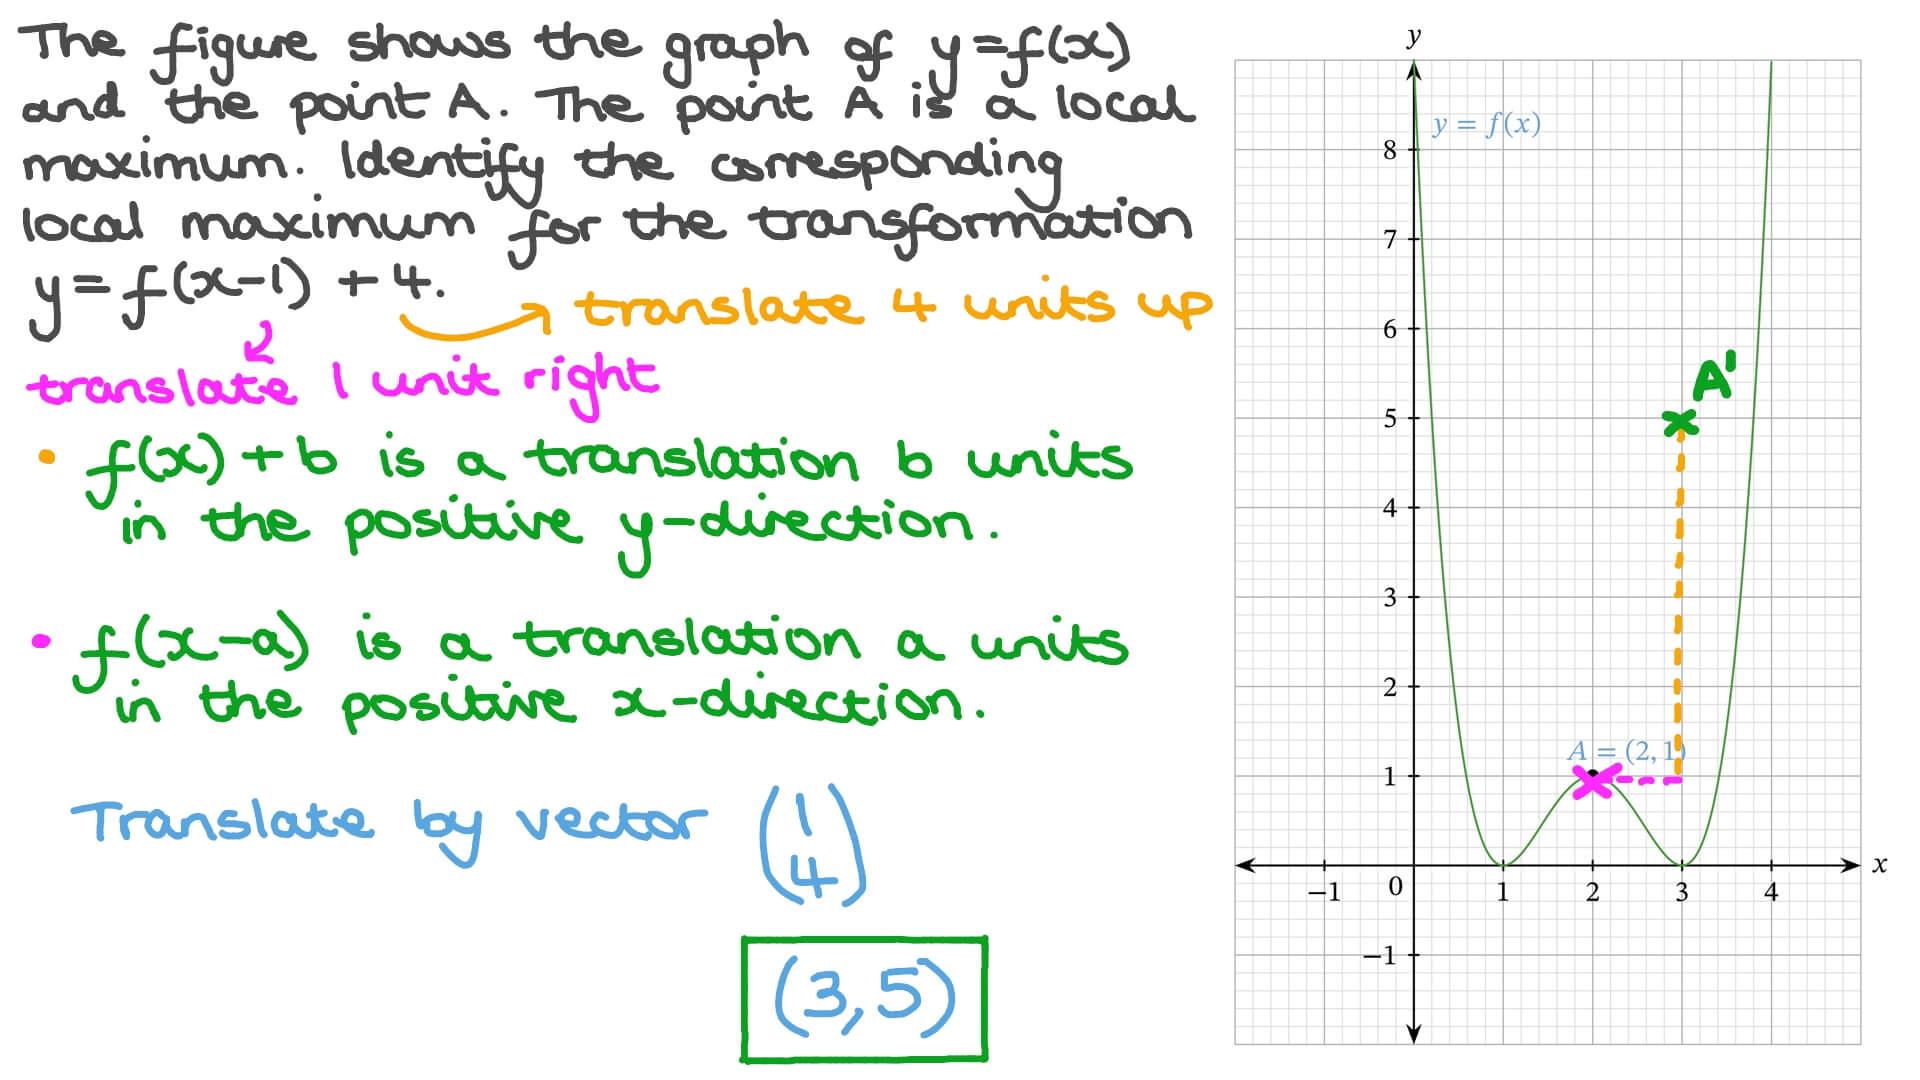 The figure shows the graph of y=f(x)
and the point A. The point A is a local
maximum. Identify the corresponding
local maximum for the transformation
y=f(x-1) +4.
translate 4 units up
translate 1 unit right
• f(x)+b is a translation b units
in the positive y-direction.
• f(x-a) is a translation a units
in the positive x-direction.
Translate by vector (1
4)
(3,5)
y
y = f(x)
8
7
6
A'
5
4
3
2
A = (2, 1)
1
x
−1 0 1 2 3 4
−1